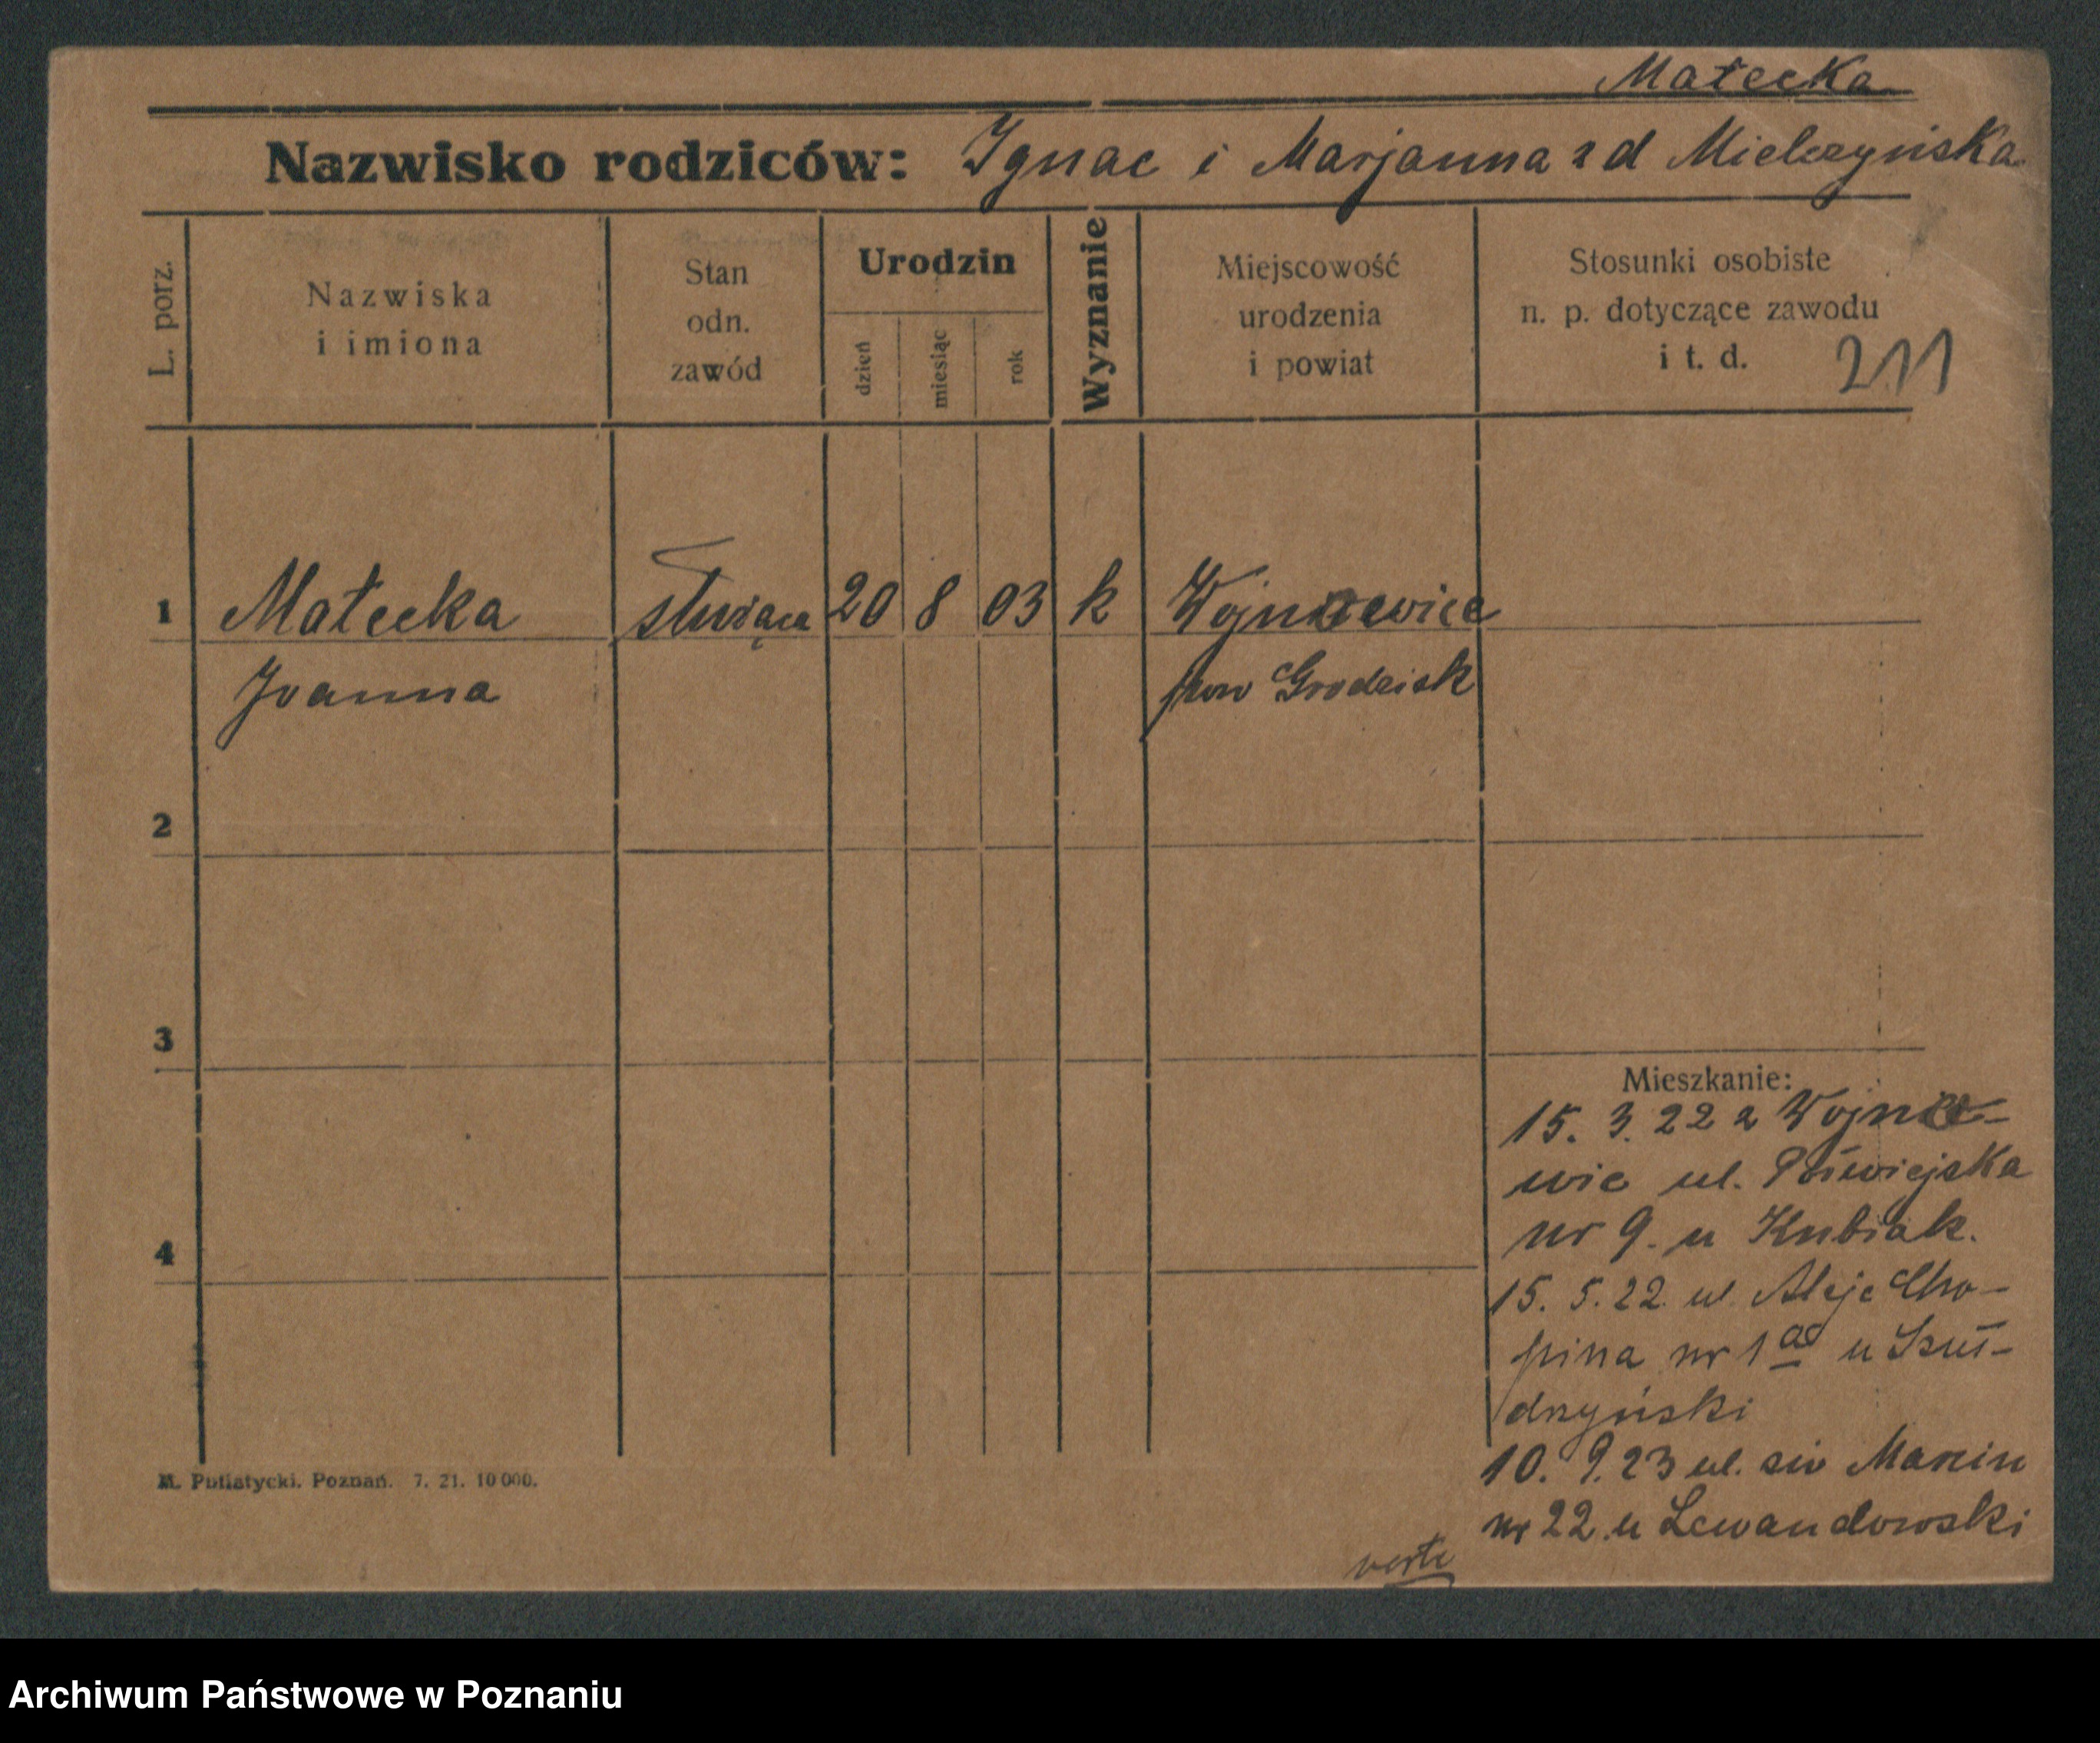 Małecka
Nazwisko rodziców: Ignac i Marjanna z d Mielczyńska
L. porz.
Nazwiska
i imiona
Stan
odn.
zawód
Urodzin
dzień
miesiąc
rok
Wyznanie
Miejscowość
urodzenia
i powiat
Stosunki osobiste
n. p. dotyczące zawodu
i t. d.
211
1 Małecka służąca 20 8 03 k Wojnowice
Joanna pow Grodzisk
2
3
Mieszkanie:
15. 3. 22 z Wojno-
wic ul. Półwiejska
nr 9. u Kubiak.
4
15. 5. 22. ul. Aleje Cho-
pina nr 1 a u Szuł-
drzyński
10. 9. 23 ul. św Marcin
nr 22 u Lewandowski
M. Putiatycki. Poznań. 7. 21. 10 000.
verte
Archiwum Państwowe w Poznaniu